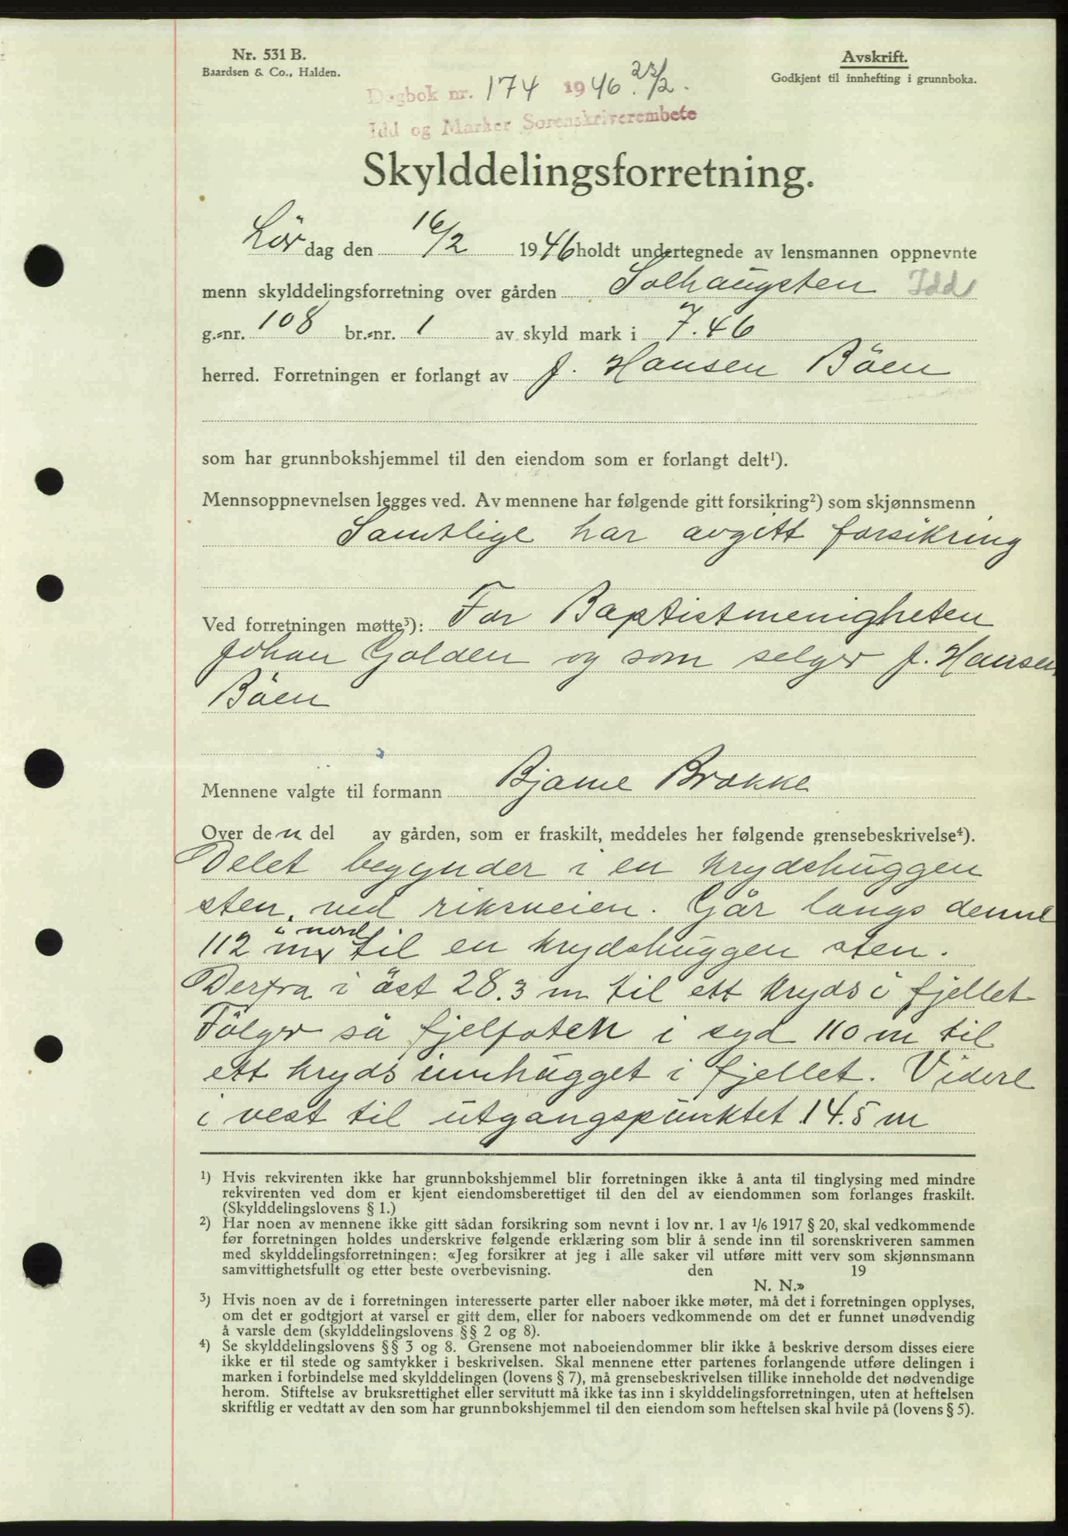 Nr. 531 B.
Baardsen & Co., Halden.
Avskrift.
Godkjent til innhefting i grunnboka.
Dagbok nr. 174 1946. 23/2.
Idd og Marker Sorenskriverembete
Skylddelingsforretning.
Lör dag den 16/2 1946 holdt undertegnede av lensmannen oppnevnte
menn skylddelingsforretning over gården Solhaugsten Idd
g.-nr. 108 br.-nr. 1 av skyld mark i 7.46
herred. Forretningen er forlangt av J. Hansen Böen
som har grunnbokshjemmel til den eiendom som er forlangt delt¹).
Mennsoppnevnelsen legges ved. Av mennene har følgende gitt forsikring²) som skjønnsmenn
Samtlige har avgitt forsikring
Ved forretningen møtte³): For Baptistmenigheten
Johan Golden og som selger J. Hansen
Böen
Mennene valgte til formann Bjarne Brække
Over den del av gården, som er fraskilt, meddeles her følgende grensebeskrivelse⁴).
Delet begynder i en krydshuggen
sten, ved riksveien. Går langs denne
112 m i nord til en krydshuggen sten.
Derfra i öst 28.3 m til ett kryds i fjellet
Fölger så fjelfoten i syd 110 m til
ett kryds innhugget i fjellet. Videre
i vest til utgangspunktet 14.5 m
¹) Hvis rekvirenten ikke har grunnbokshjemmel blir forretningen ikke å anta til tinglysing med mindre
rekvirenten ved dom er kjent eiendomsberettiget til den del av eiendommen som forlanges fraskilt.
(Skylddelingslovens § 1.)
²) Har noen av mennene ikke gitt sådan forsikring som nevnt i lov nr. 1 av 1/6 1917 § 20, skal vedkommende
før forretningen holdes underskrive følgende erklæring som blir å sende inn til sorenskriveren sammen
med skylddelingsforretningen: «Jeg forsikrer at jeg i alle saker vil utføre mitt verv som skjønnsmann
samvittighetsfullt og etter beste overbevisning. den 19
N. N.»
³) Hvis noen av de i forretningen interesserte parter eller naboer ikke møter, må det i forretningen opplyses,
om det er godtgjort at varsel er gitt dem, eller for naboers vedkommende om det er funnet unødvendig
å varsle dem (skylddelingslovens §§ 2 og 8).
⁴) Se skylddelingslovens §§ 3 og 8. Grensene mot naboeiendommer blir ikke å beskrive dersom disses eiere
ikke er til stede og samtykker i beskrivelsen. Skal mennene etter partenes forlangende utføre delingen i
marken i forbindelse med skylddelingen (lovens § 7), må grensebeskrivelsen tillike inneholde det nødvendige
herom. Stiftelse av bruksrettighet eller servitutt må ikke tas inn i skylddelingsforretningen, uten at heftelsen
skriftlig er vedtatt av den som har grunnbokshjemmel til den eiendom som heftelsen skal hvile på (lovens § 5).